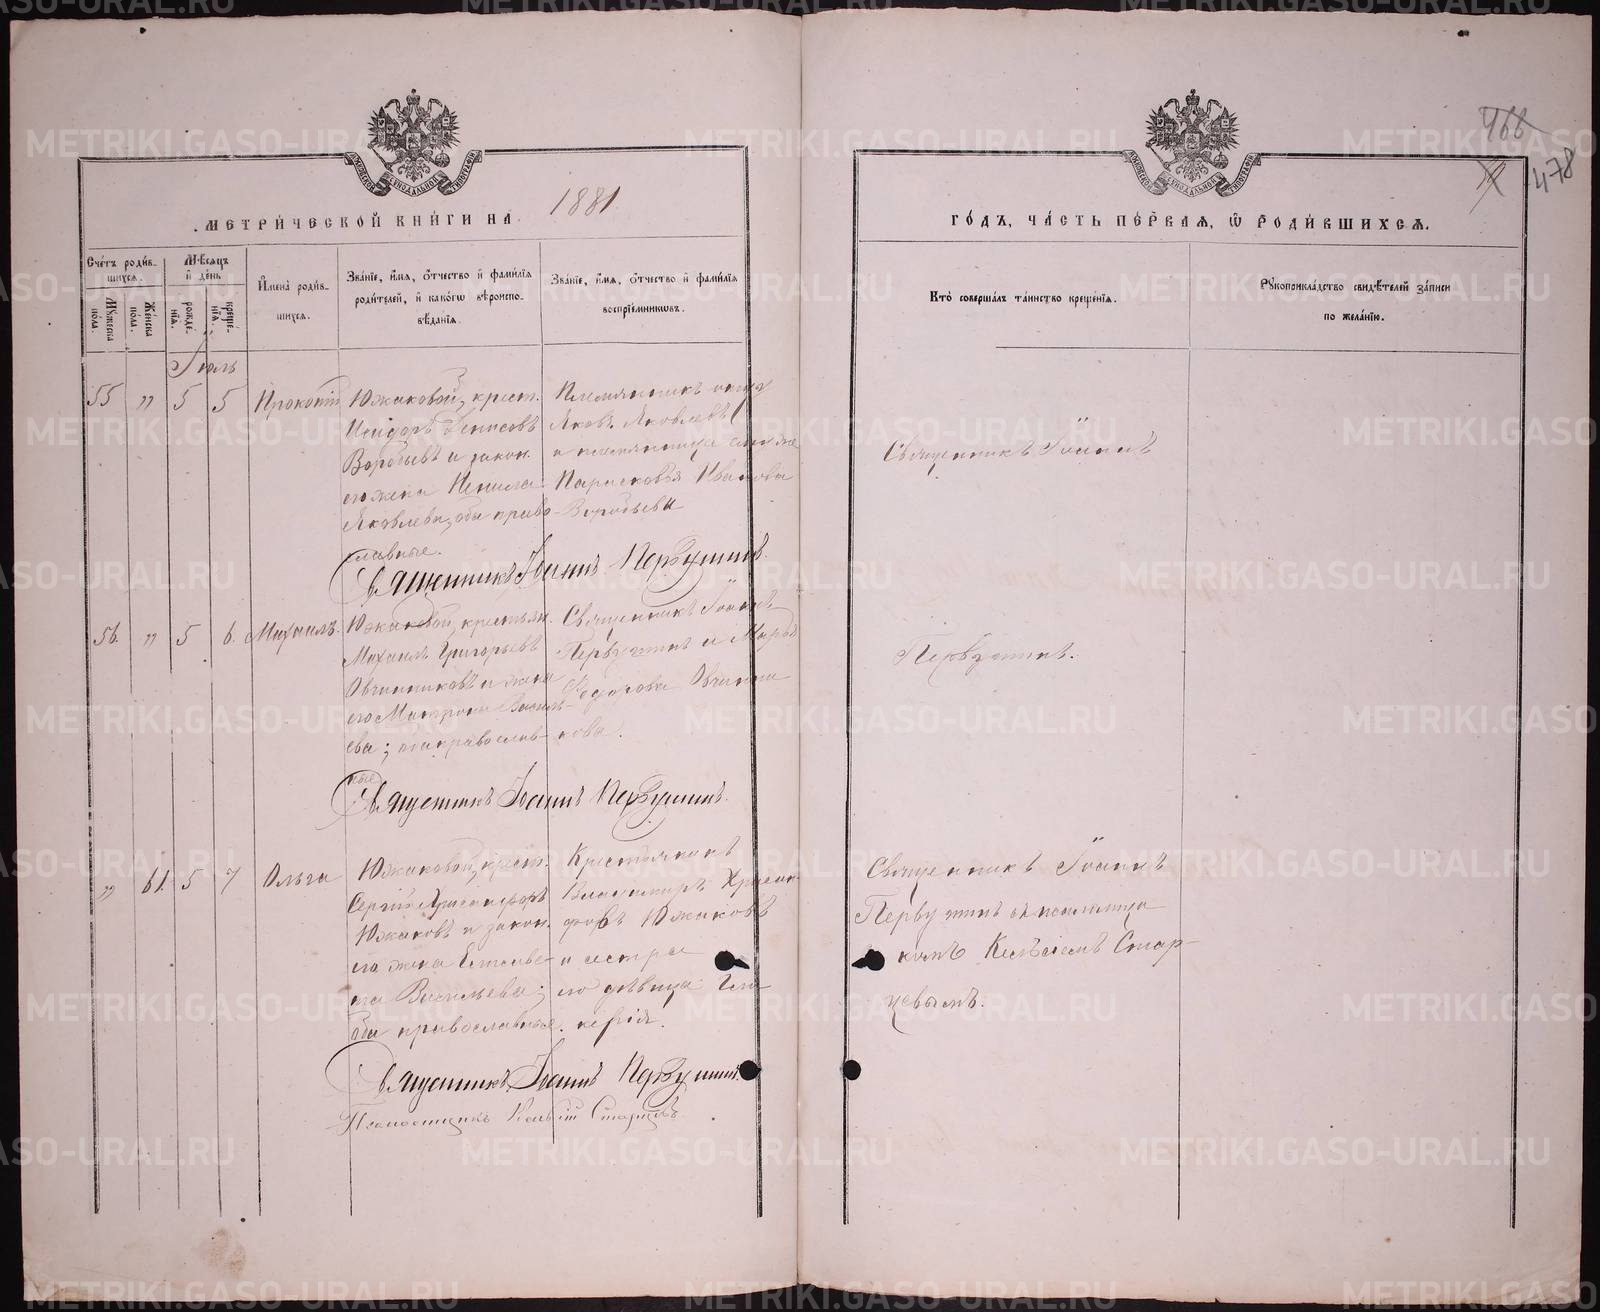 466
478
1881
МЕТРИ́ЧЕСКОЙ КНИ́ГИ НА
ГО́ДЪ, ЧА́СТЬ ПЕ́РВАЯ, Ѡ РОДИ́ВШИХСЯ.
Сче́тъ роди́в-
шихся.
Мѹжеска по́ла.
Же́нска по́ла.
Мѣсяцъ и де́нь
рожде́нїя.
креще́нїя.
Имена̀ роди́в-
шихся.
Зва́нїе, и́мя, ѻ́тчество и фами́лїя
роди́телей, и како́гѡ вѣроиспо-
вѣ́данїя.
Зва́нїе, и́мя, ѻ́тчество и фами́лїя
воспрїе́мниковъ.
Кто̀ соверша́лъ та́инство креще́нїя.
Рѹкоприкла́дство свидѣ́телей за́писи
по жела́нїю.
Іюль
55 „ 5 5 Прокопій
Южаковой, крест.
Исидоръ Денисовъ
Воробьевъ и закон.
его жена Ненила
Яковлева, оба право-
славные.
Племянникъ
Яковъ Яковлевъ
и племянница
Парасковья Иванова
Воробьева
Священникъ Іоаннъ
Священникъ Іоаннъ Первушинъ.
56. „ 5 6. Михаилъ.
Южаковой, крестьян.
Михаилъ Григорьевъ
Овчинниковъ и жена
его Матрона Василь-
ева; оба православ-
ные
Священникъ Іоаннъ
Первушинъ и Марья
Ѳедорова Овчинни
кова.
Первушинъ.
Священникъ Іоаннъ Первушинъ.
„ 61. 5 7 Ольга
Южаковой, крест.
Сергій
Южаковъ и закон.
его жена Елисаве-
та Васильева;
оба православные.
Крестьянинъ
Владимиръ Хрисан-
фовъ Южаковъ
и сестра
его дѣвица Гли
керія.
Священникъ Іоаннъ
Первушинъ съ псаломщи
комъ Келѣсіемъ Стар-
цевымъ.
Священникъ Іоаннъ Первушинъ.
Псаломщикъ Старцевъ.
METRIKI.GASO-URAL.RU